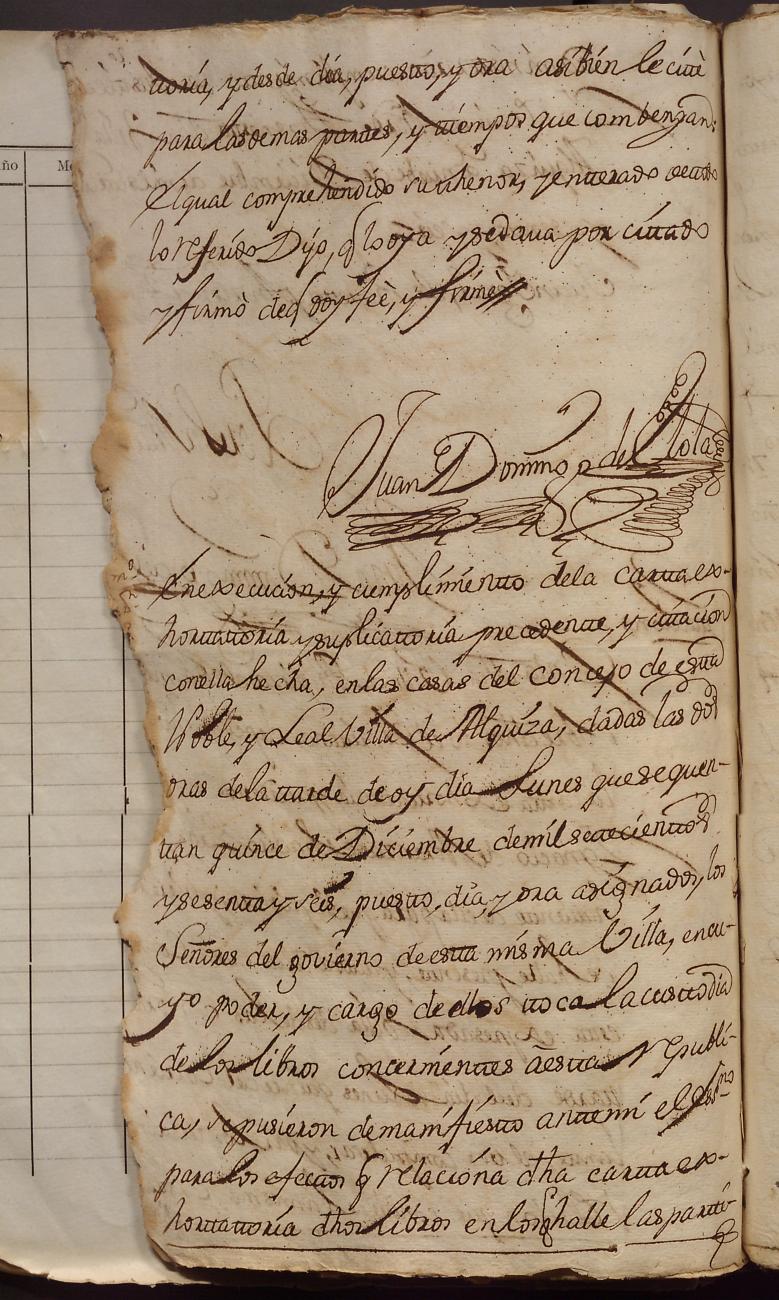 ttoria, y desde dia, puestto, y ora asibien le citè
para las demas parttes, y ttiempos que combengan:
El qual comprehendido su thenor, y entterado de ttodo
lo referido Dijo, q̃ lo oya y se dava por cittado
y firmò de q̃ doy feè, y firmè
Juan Domingo de
En execucion, y cumplimientto de la cartta ex-
horttattoria y suplicattoria precedentte, y cittacion
con ella hecha, en las casas del concejo de estta
Noble, y Leal Villa de Alquiza, dadas las dos
oras de la ttarde de oy dia Lunes que se quen-
ttan quince de Diciembre de mil settecienttos
y sesentta y seis, puestto, dia, y ora asignados, los
Señores del govierno de estta misma Villa, en cu-
yo poder, y cargo de ellos ttoca la custtodia
de los libros concernienttes à estta Republi-
ca, se pusieron de manifiestto antte mi el essno
para los efecttos q̃ relaciona dha cartta ex-
horttattoria dhos libros en los q̃ halle las partti-
año